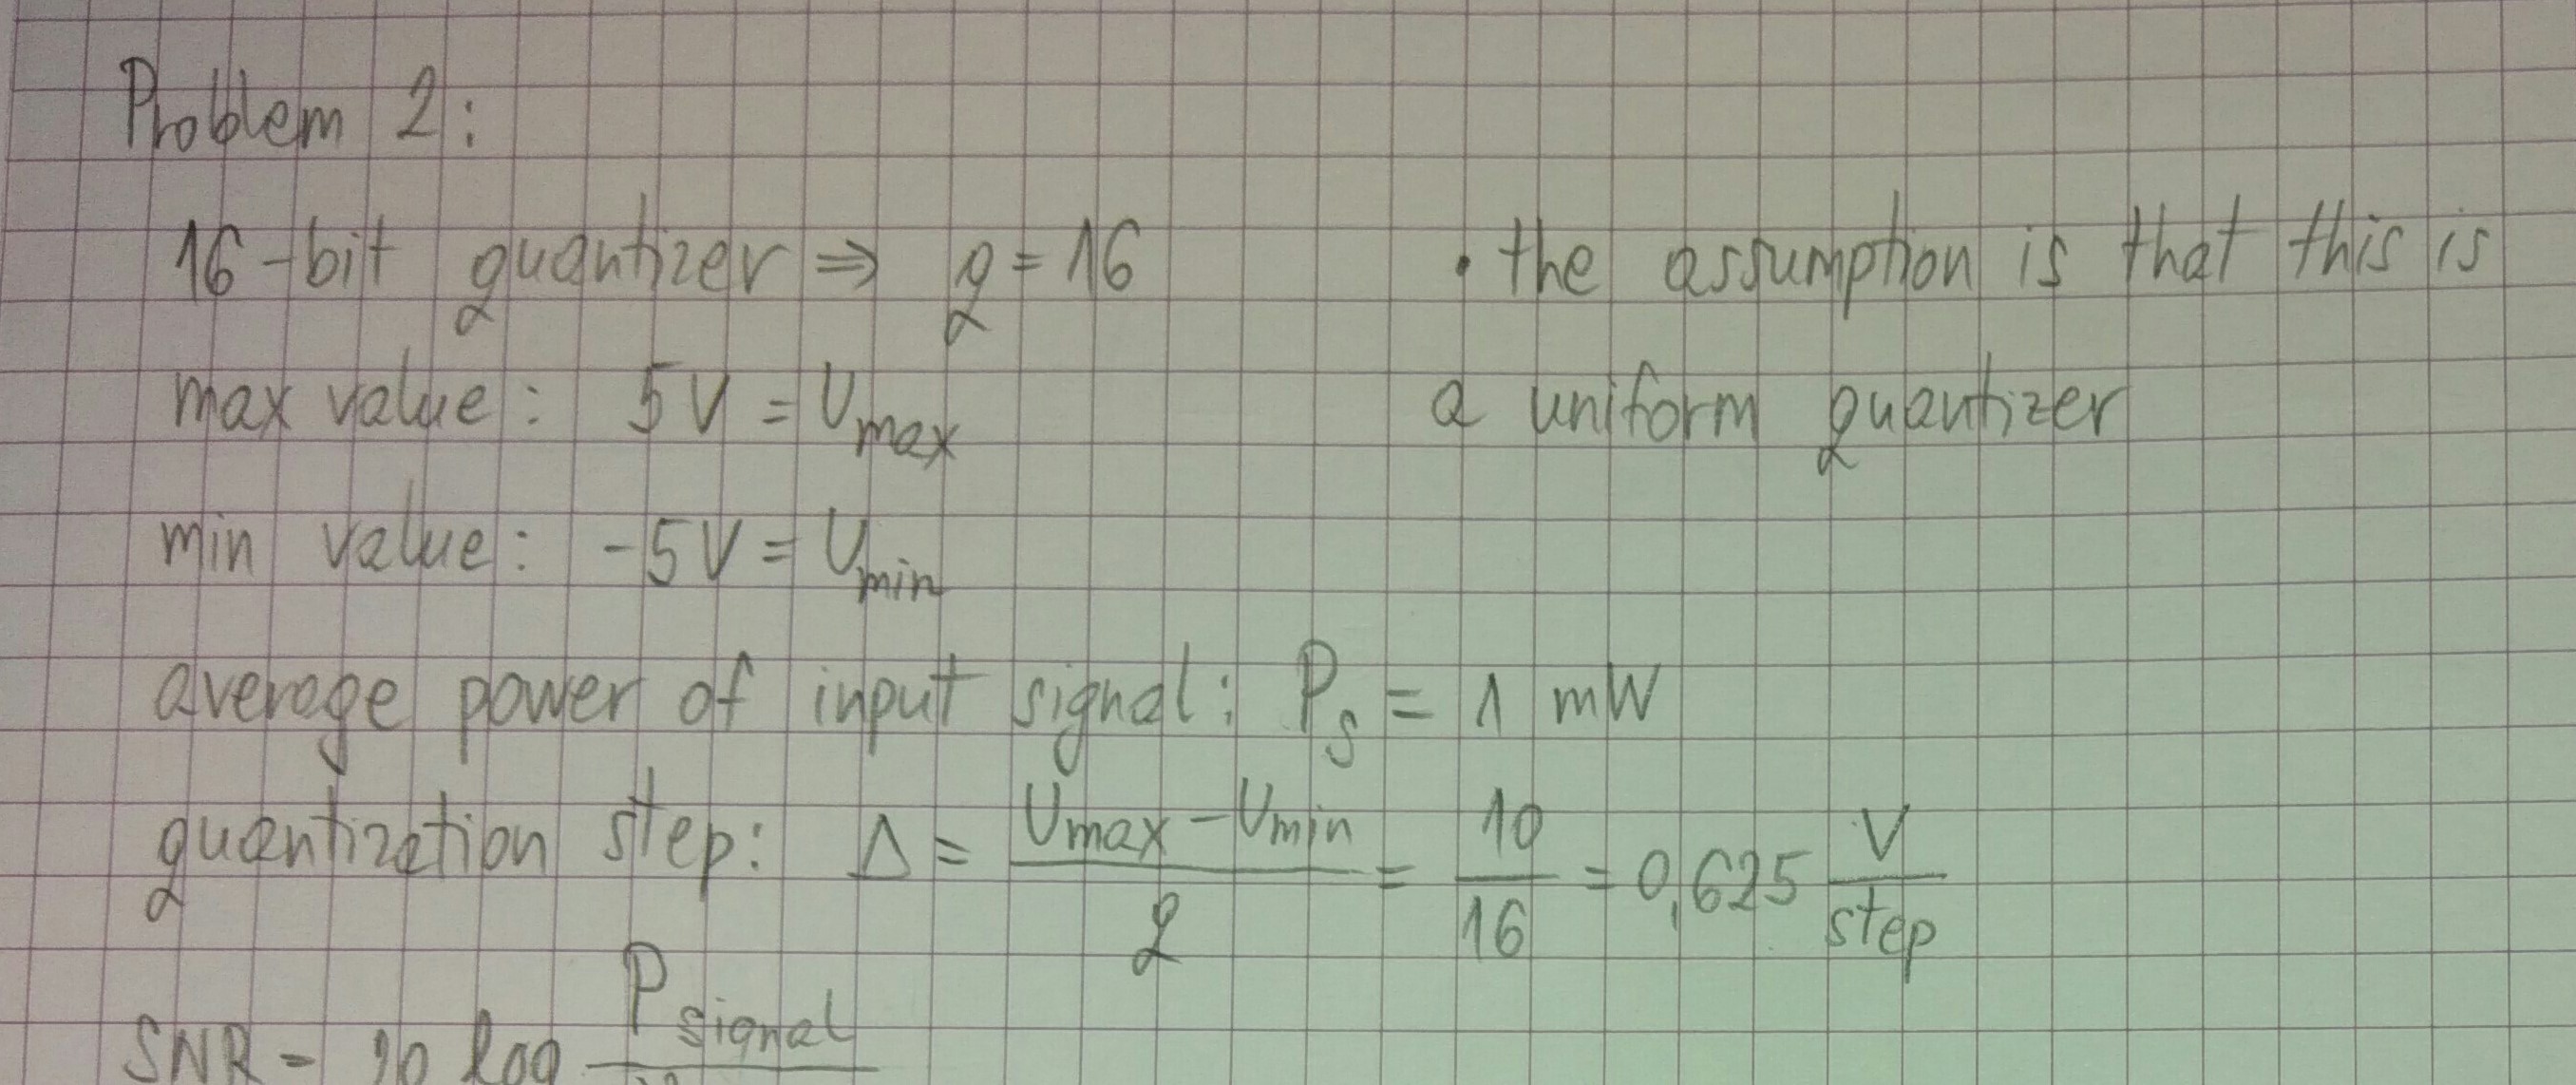 Problem 2:
16-bit quantizer ⇒ q = 16
• the assumption is that this is
a uniform quantizer
max value: 5V = Umax
min value: -5V = Umin
average power of input signal: Ps = 1 mW
quantization step: Δ = (Umax - Umin)/q = 10/16 = 0,625 V/step
SNR = 10 log Psignal